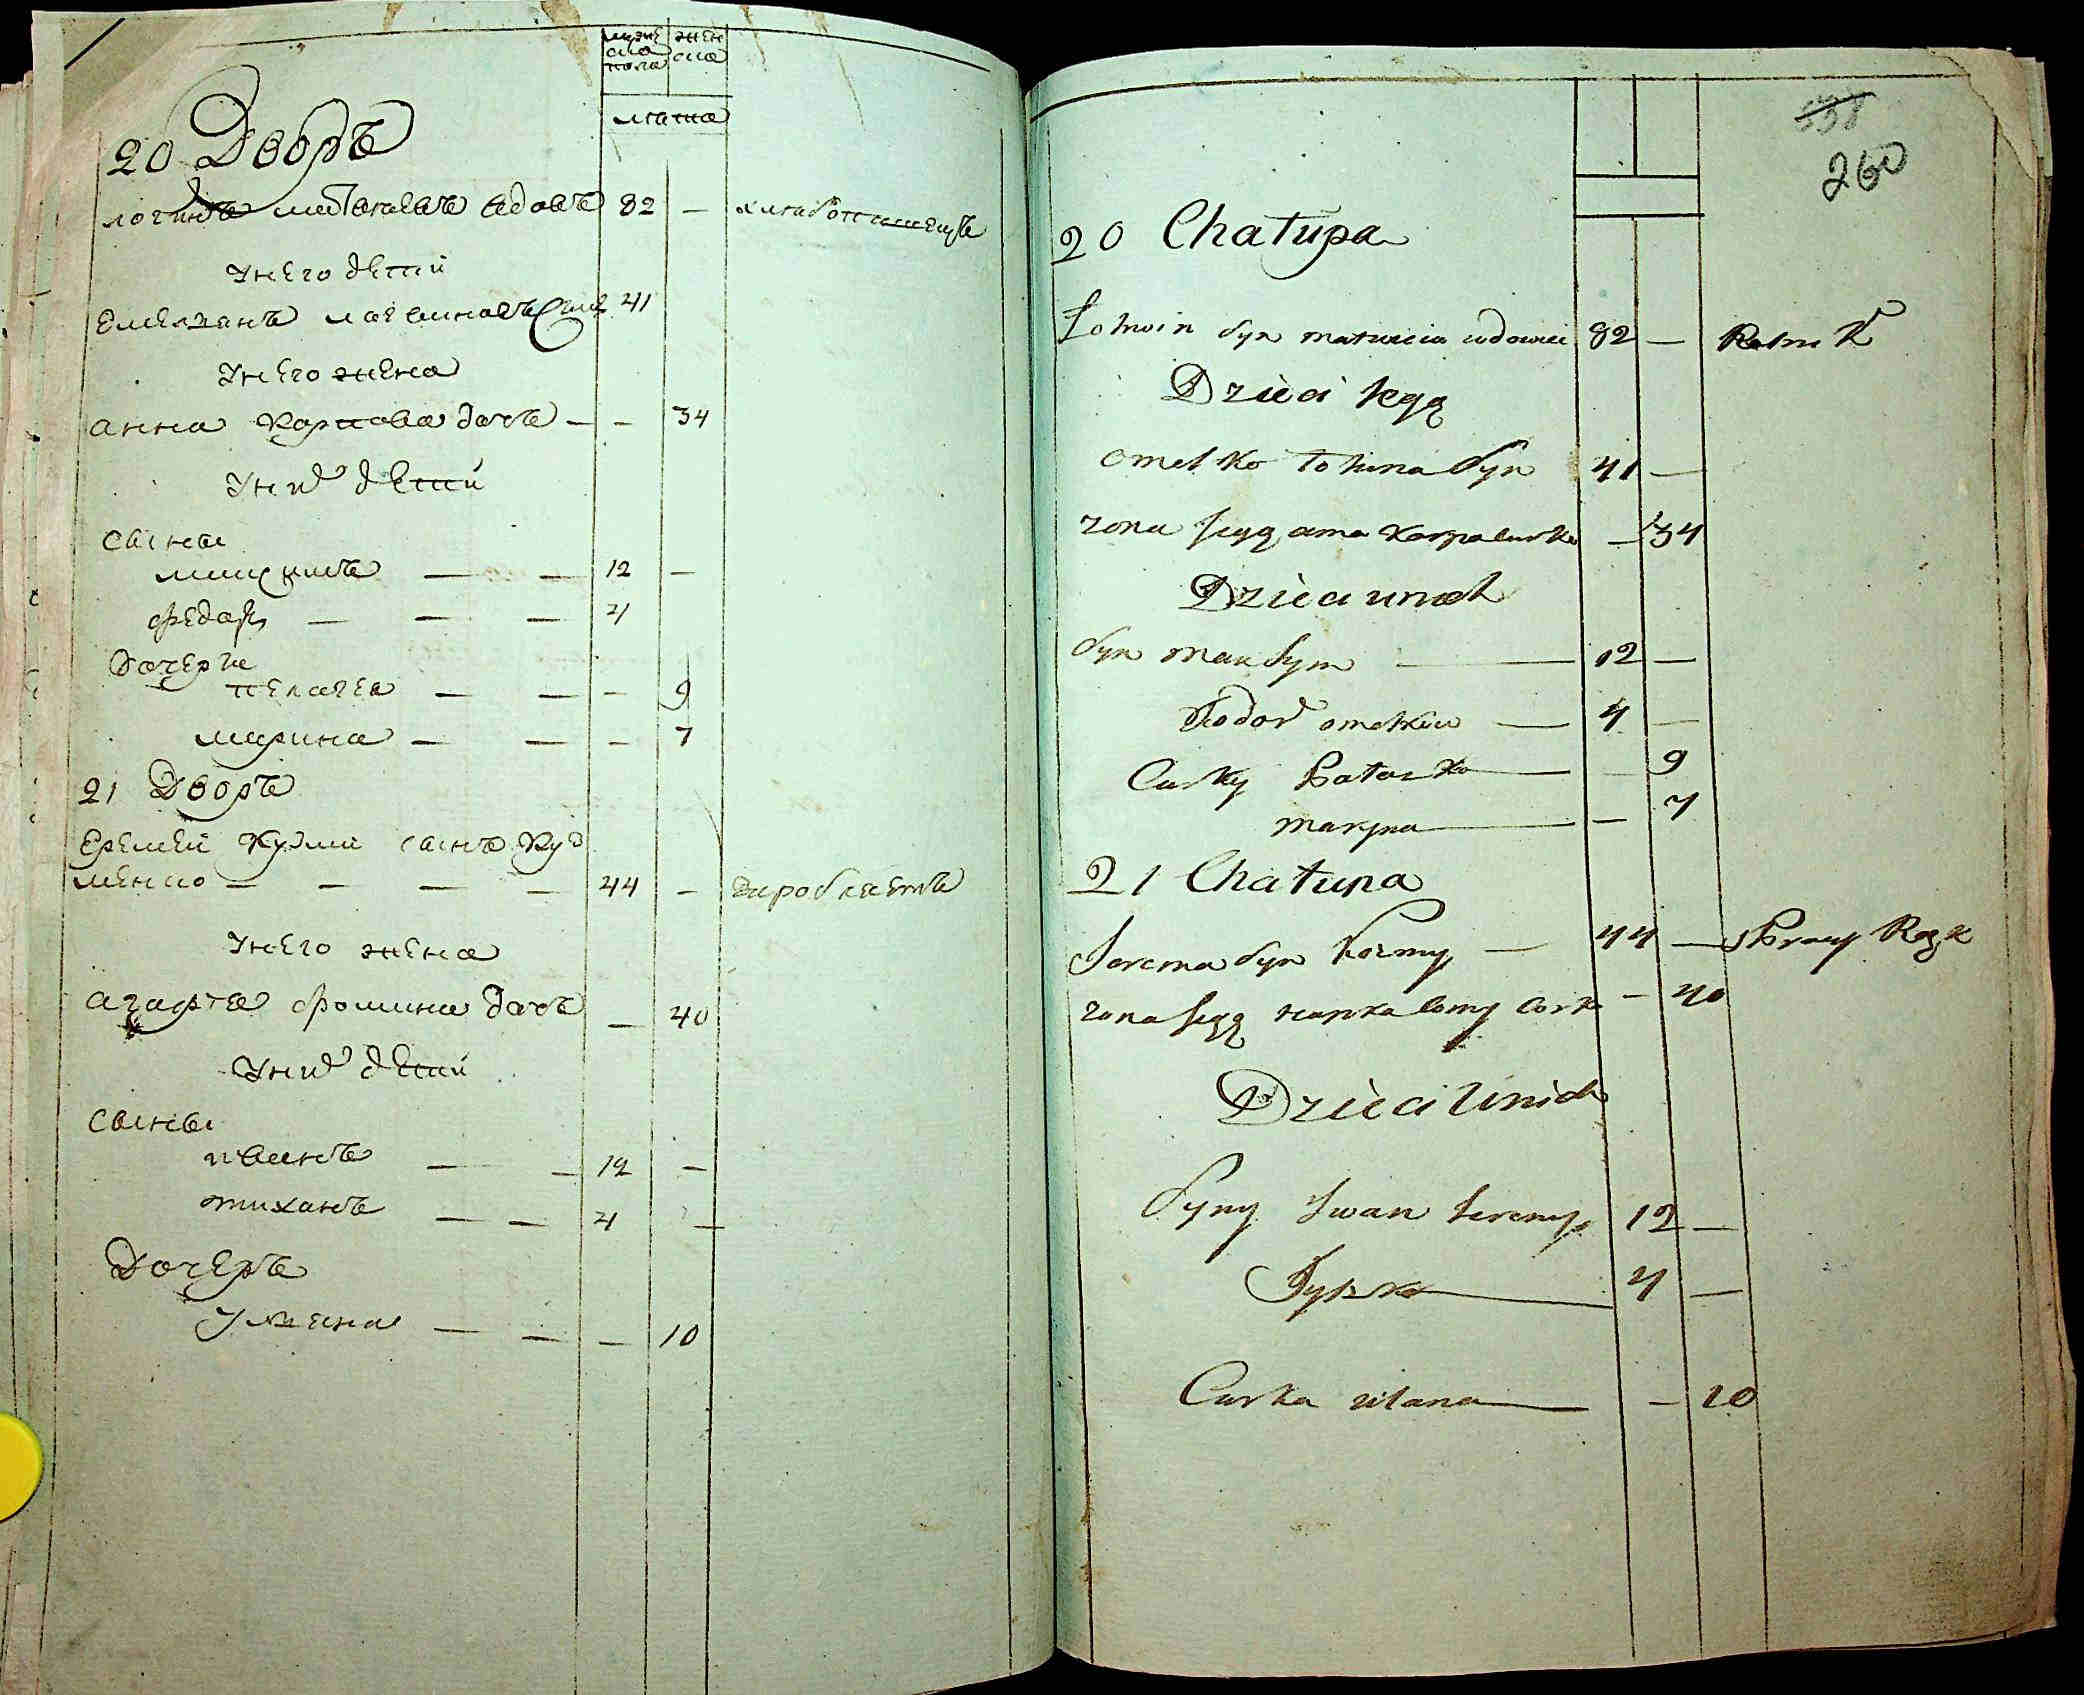 муже
ска
пола
жен
ска
лѣта
20 Дворъ
логинъ матвеевъ вдовъ 82 — хлѣбопашецъ
Унего дети
Емелянъ логвиновъ сынъ 41
Унего жена
анна Карпова дочь — — 34
Уних дети
Сыны
максимъ — — 12 —
федоръ — — — 4
Дочери
пелагея — — — 9
марина — — — 7
21 Дворъ
Еремей Кузми сынъ Куз
менко — — — — 44 — заробляетъ
Унего жена
агафія фомина дочь — 40
Уних дети
Сыны
иванъ — — 12 —
тиханъ — — 4 —
Дочерь
Улияна — — — 10
558
260
20 Chałupa
Łohwin Syn matwieia wdowiec 82 — Rolnik
Dzieci iego
omelko łohwina Syn 41 —
zona iego anna Karpa curka — 34
Dzieci unich
Syn maksym — 12 —
Fiodor omelkiw — 4 —
Curky Pałaszka — — 9
maryna — — 7
21 Chałupa
Jerema Syn Kozmy — 44 — s Pracy Rąk
zona iego Hapka Chomy Corka — 40
Dzieci Unich
Syny Iwan Ieremy 12 —
Tyszko — 4 —
Curka ulana — — 10